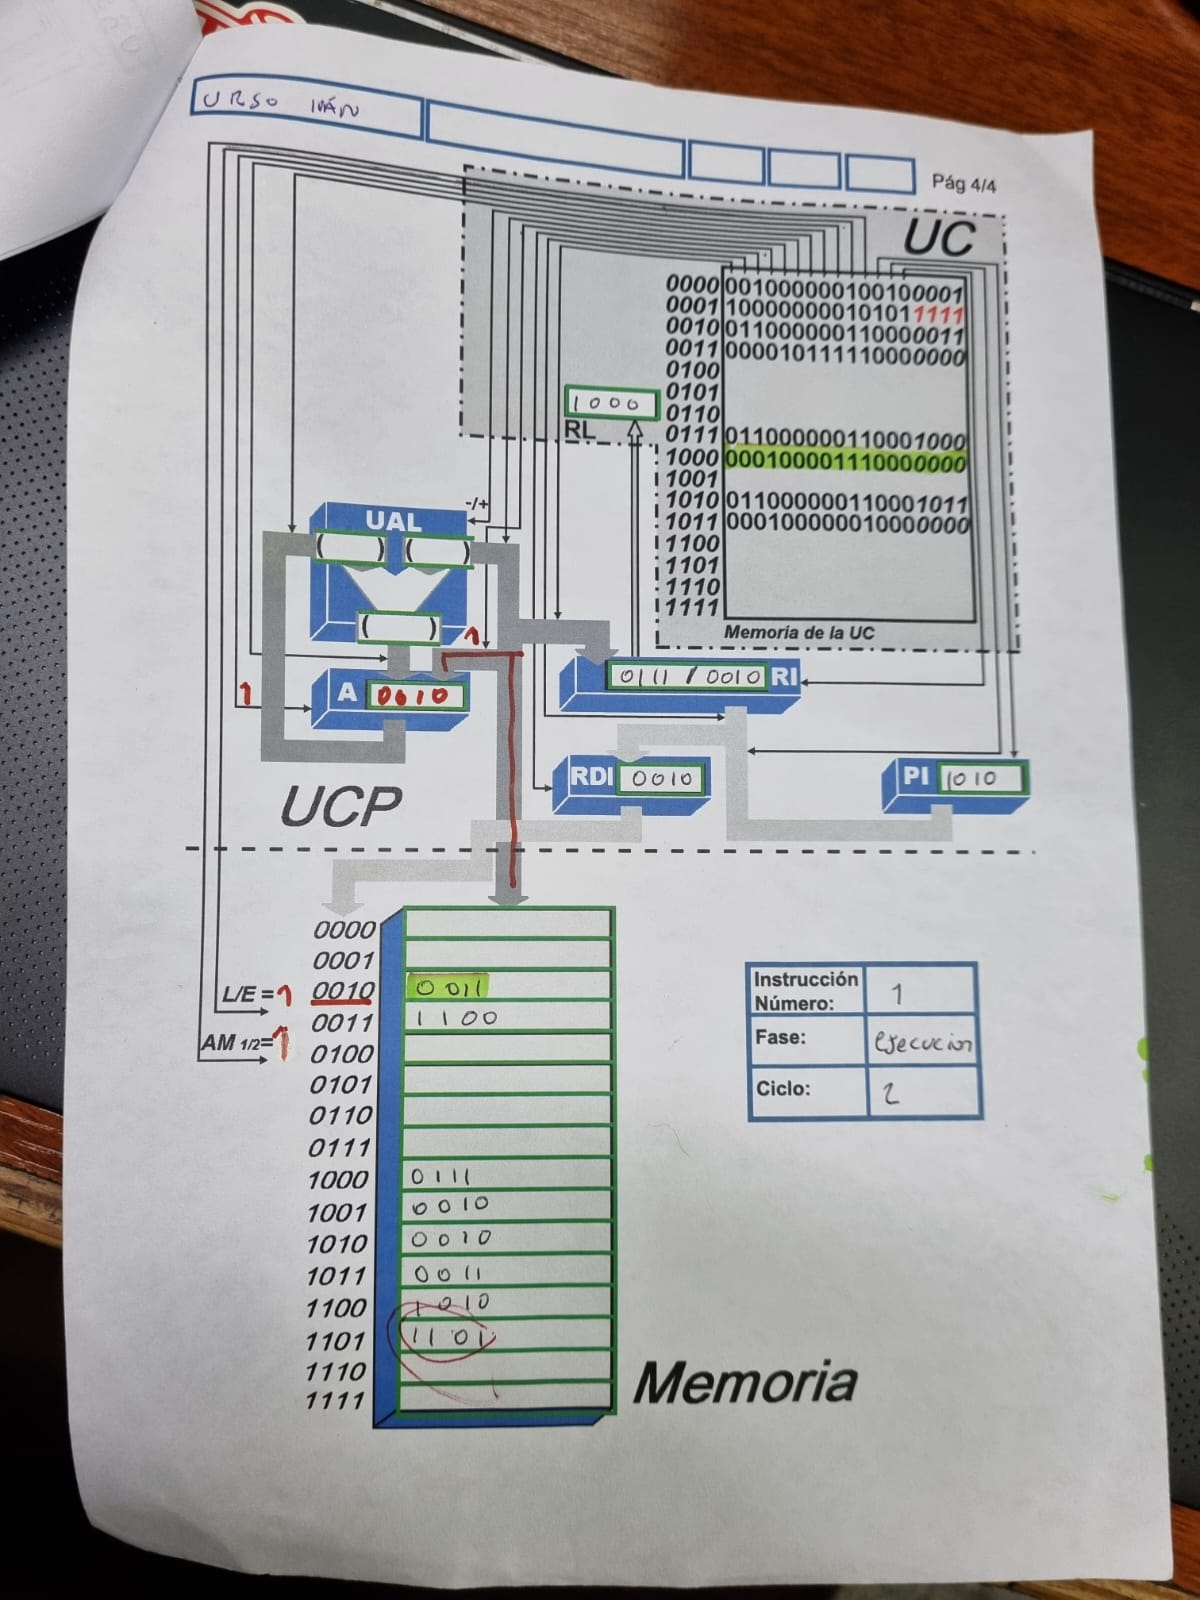 URSO IVÁN
Pág 4/4
UC
0000 001000000100100001
0001 100000000010101 1111
0010 011000000110000011
0011 000010111110000000
0100
0101
0110
0111 011000000110001000
1000 000100001110000000
1001
1010 011000000110001011
1011 000100000010000000
1100
1101
1110
1111
Memoria de la UC
1000
RL
-/+
UAL
( ) ( )
( )
1
1
A 0010
0111 / 0010 RI
RDI 0010
PI 1010
UCP
0000
0001
L/E = 1 0010 0011
0011 1100
AM 1/2= 1 0100
0101
0110
0111
1000 0111
1001 0010
1010 0010
1011 0011
1100 1010
1101 1101
1110
1111
Memoria
Instrucción
Número: 1
Fase: ejecucion
Ciclo: 2